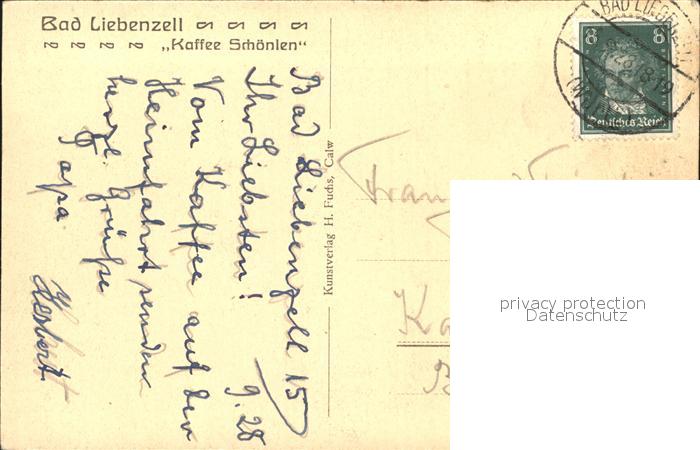 Bad Liebenzell
„Kaffee Schönlen“
Bad Liebenzell 15
9.28
Ihr Liebsten!
Vom Kaffee auf der
Heimfahrt senden
herzl. Grüße
Papa
Herbert
Kunstverlag H. Fuchs, Calw
BAD LIEBENZELL
8 8
Deutsches Reich
privacy protection
Datenschutz